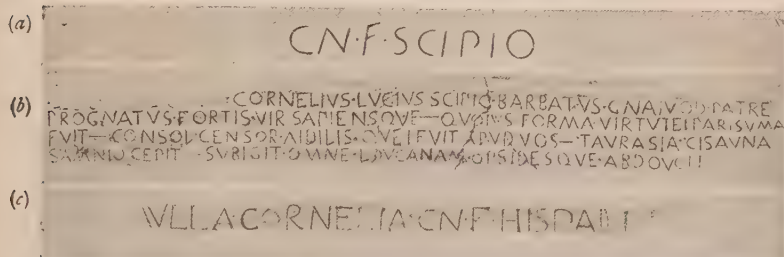 (a) CN·F·SCIPIO
(b) CORNELIVS·LVCIVS·SCIPIO·BARBATVS·GNAIVOD·PATRE
PROGNATVS·FORTIS·VIR·SAPIENSQVE—QVOIVS·FORMA·VIRTVTEI·PARISVMA
FVIT—CONSOL·CENSOR·AIDILIS·QVEI·FVIT·APVD·VOS—TAVRASIA·CISAVNA
SAMNIO·CEPIT SVBIGIT·OMNE·LOVCANAM·OPSIDESQVE·ABDOVCIT
(c) CORNELIA·CN·F·HISPALLI